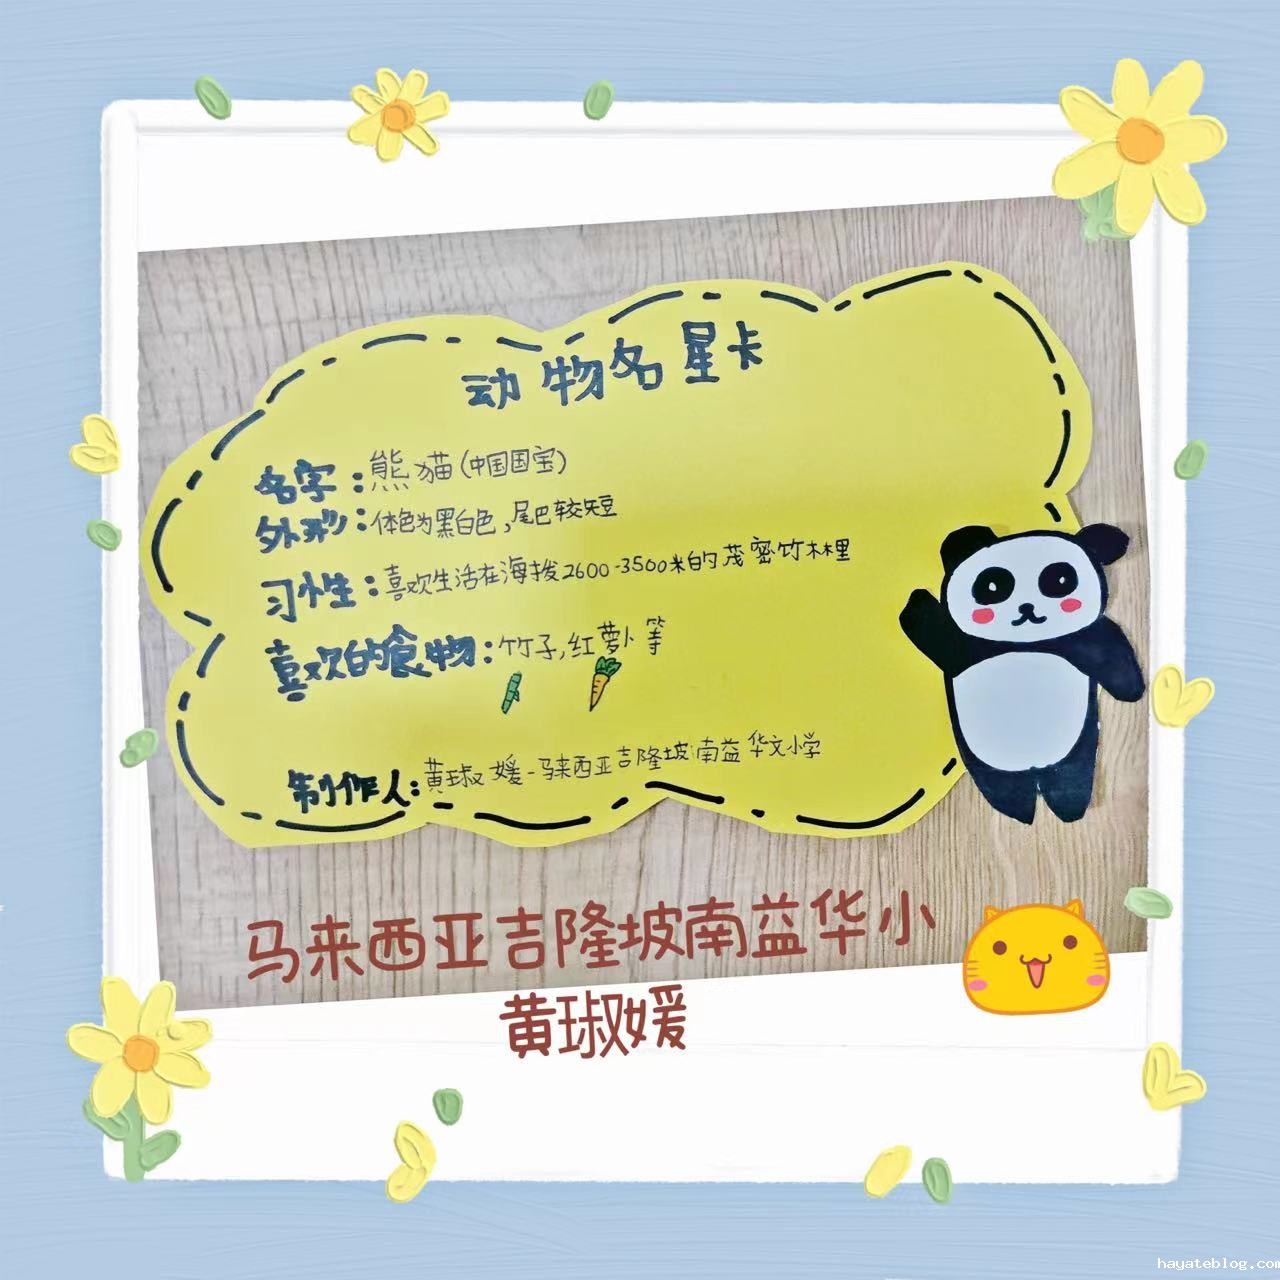 动物名星卡
名字：熊猫（中国国宝）
外形：体色为黑白色，尾巴较短
习性：喜欢生活在海拨2600-3500米的茂密竹林里
喜欢的食物：竹子，红萝卜等
制作人：黄琡媛-马来西亚吉隆坡南益华文小学
马来西亚吉隆坡南益华小
黄琡媛
hayateblog.com